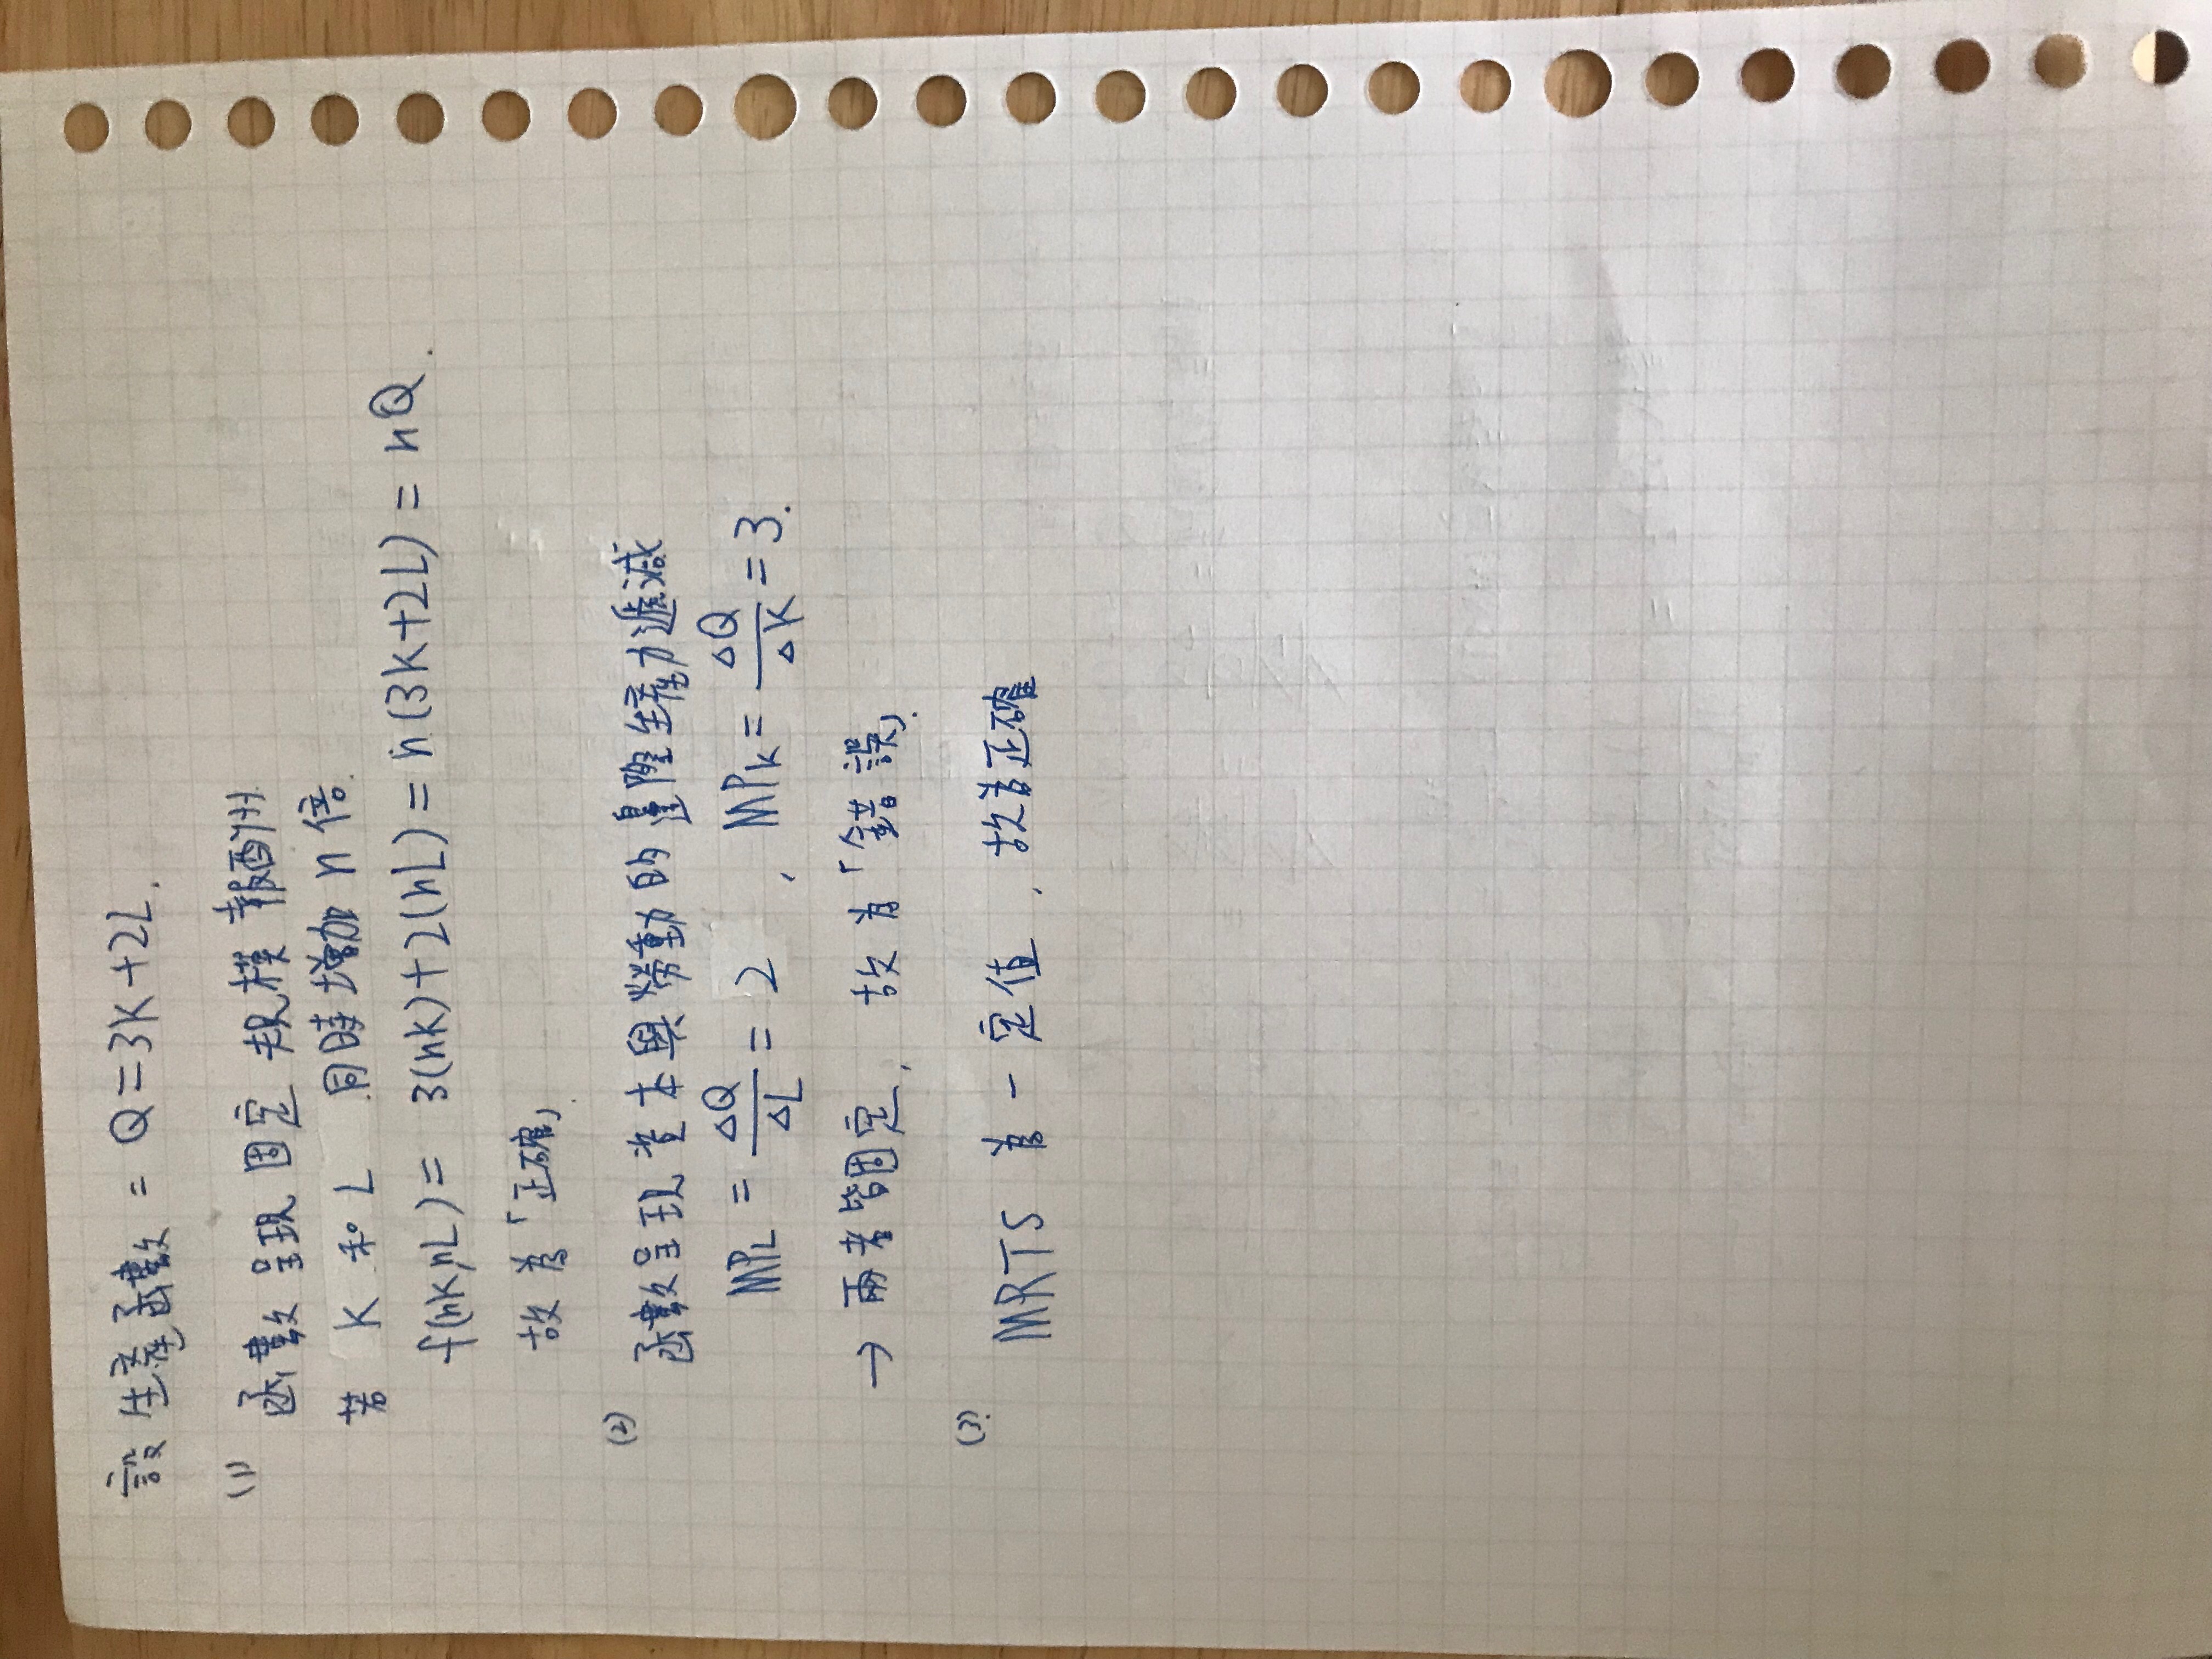 設生產函數 = Q=3K+2L.
(1) 函數呈現固定規模報酬
若 K 和 L 同時增加 n 倍.
f(nK,nL) = 3(nK)+2(nL) = n(3K+2L) = nQ.
故為「正確」
(2) 函數呈現資本與勞動的邊際生產力遞減
MPL = ΔQ/ΔL = 2 , MPK = ΔQ/ΔK = 3.
→ 兩者皆固定, 故為「錯誤」.
(3) MRTS 為一定值, 故為正確